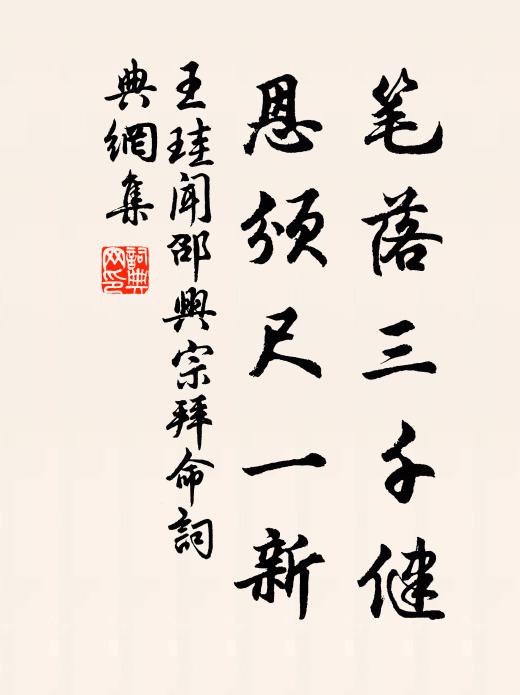 笔落三千健
恩颁尺一新
王珪闻邵興宗拜命詞
典網集
詞典
网印